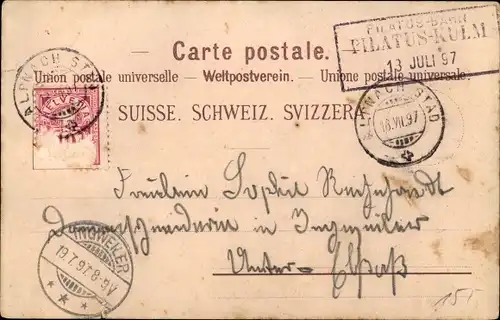 PILATUS-BAHN
PILATUS-KULM
18 JULI 97
Carte postale.
Union postale universelle. — Weltpostverein. — Unione postale universale.
ALPNACH STAD
SUISSE. SCHWEIZ. SVIZZERA.
ALPNACH STAD
18.VII.97
Fräulein Sophie
in Ingweiler
Unter-Elsaß
INGWEILER
19.7.97.8-9V